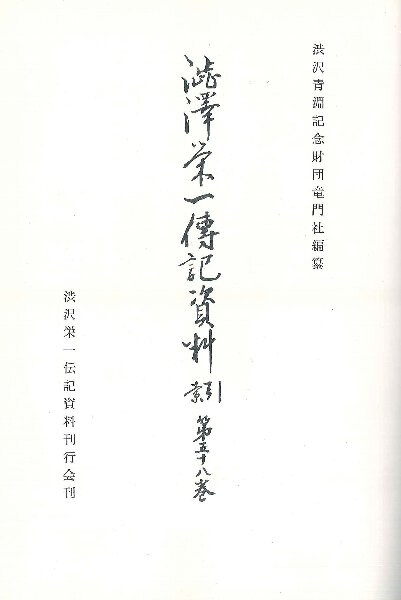 渋沢青淵記念財団竜門社編纂
澁澤栄一傳記資料 索引 第五十八巻
渋沢栄一伝記資料刊行会刊